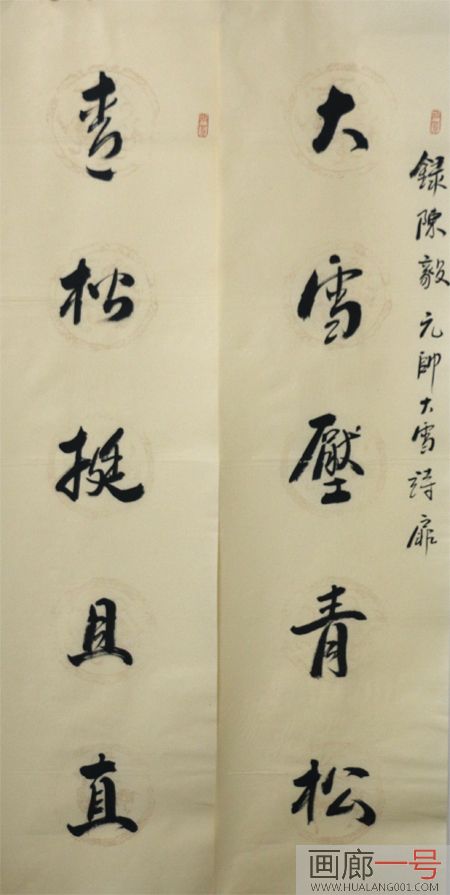 録陳毅元帥大雪詩
大雪壓青松
青松挺且直
画廊一号
WWW.HUALANG001.COM